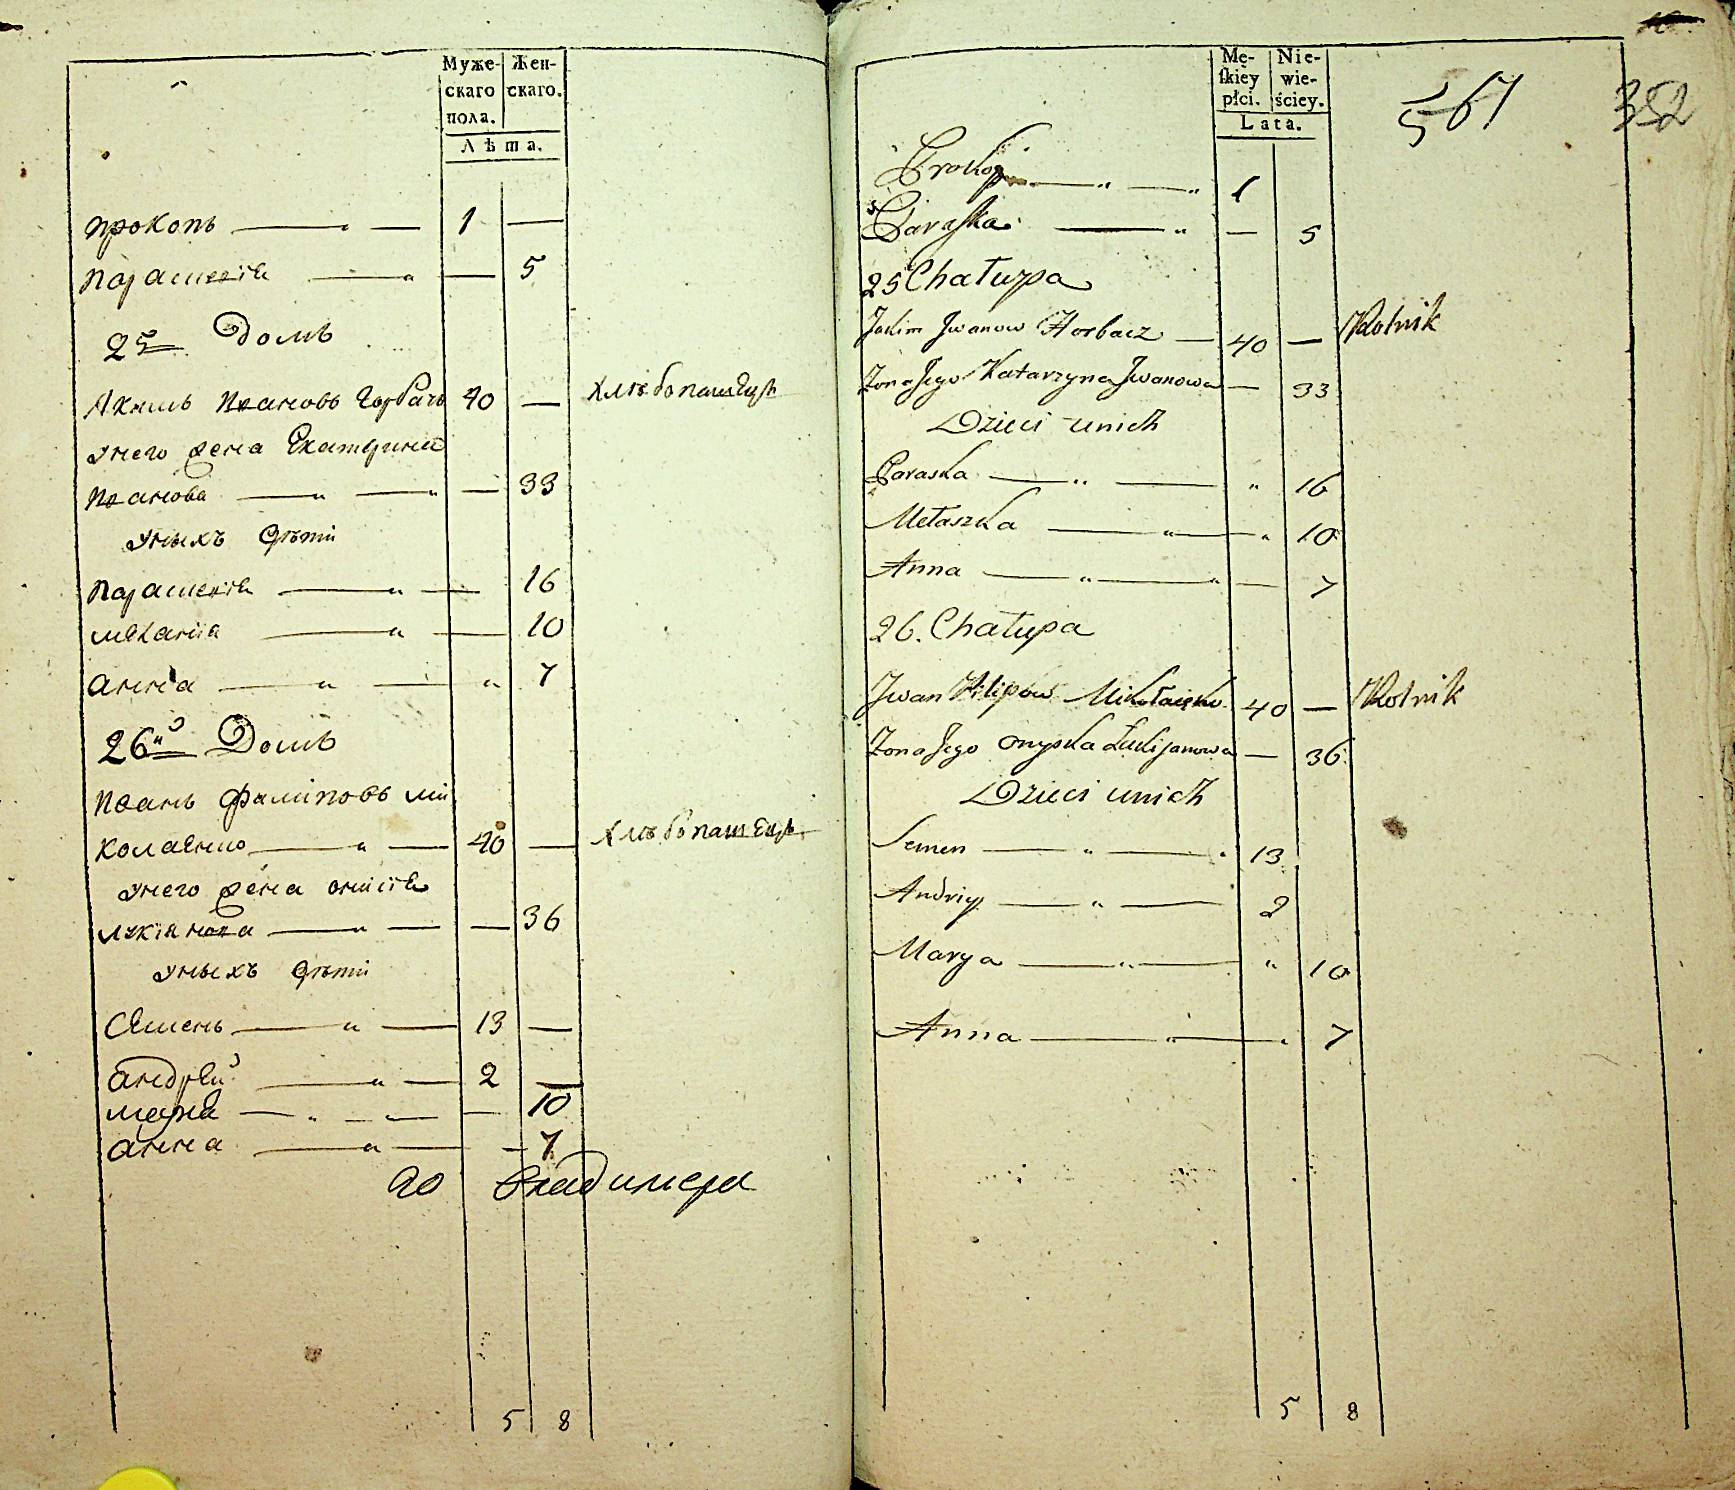 Муже-
скаго
пола.
Жен-
скаго.
Лѣта.
прокопъ — „ — 1 —
параскевіа — „ — 5
25 Домъ
Акимъ Ивановъ Горбачъ 40 — хлѣбопашецъ
унего жена Екатерина
Иванова — „ — „ — 33
унихъ дѣти
параскевіа — „ — 16
меланіа — „ — 10
анна — „ — „ 7
26й Домъ
Иванъ филиповъ ми
колаенко — „ — 40 — хлѣбопашецъ
унего жена
лукіанова — „ — — 36
унихъ дѣти
Семенъ — „ — 13 —
андрей — „ — 2 —
мариа — „ — — 10
анна — „ — — 7
Владимера
5 8
Mę-
ſkiéy
płci.
Nie-
wie-
ściey.
Lata.
567
352
Prokop — „ — „ 1
Paraska — „ — 5
25 Chałupa
Jakim Jwanow Horbacz — 40 — Rolnik
Zona Jego Katarzyna Jwanowa — 33
Dzieci unich
Paraska — „ — „ 16
Melaszka — „ — „ 10
Anna — „ — „ — 7
26. Chałupa
Jwan Filipow 40 — Rolnik
Zona Jego Onyska Łukijanowa — 36
Dzieci unich
Semen — „ — 13
Andriy — „ — 2
Marya — „ — „ 10
Anna — „ — „ 7
5 8